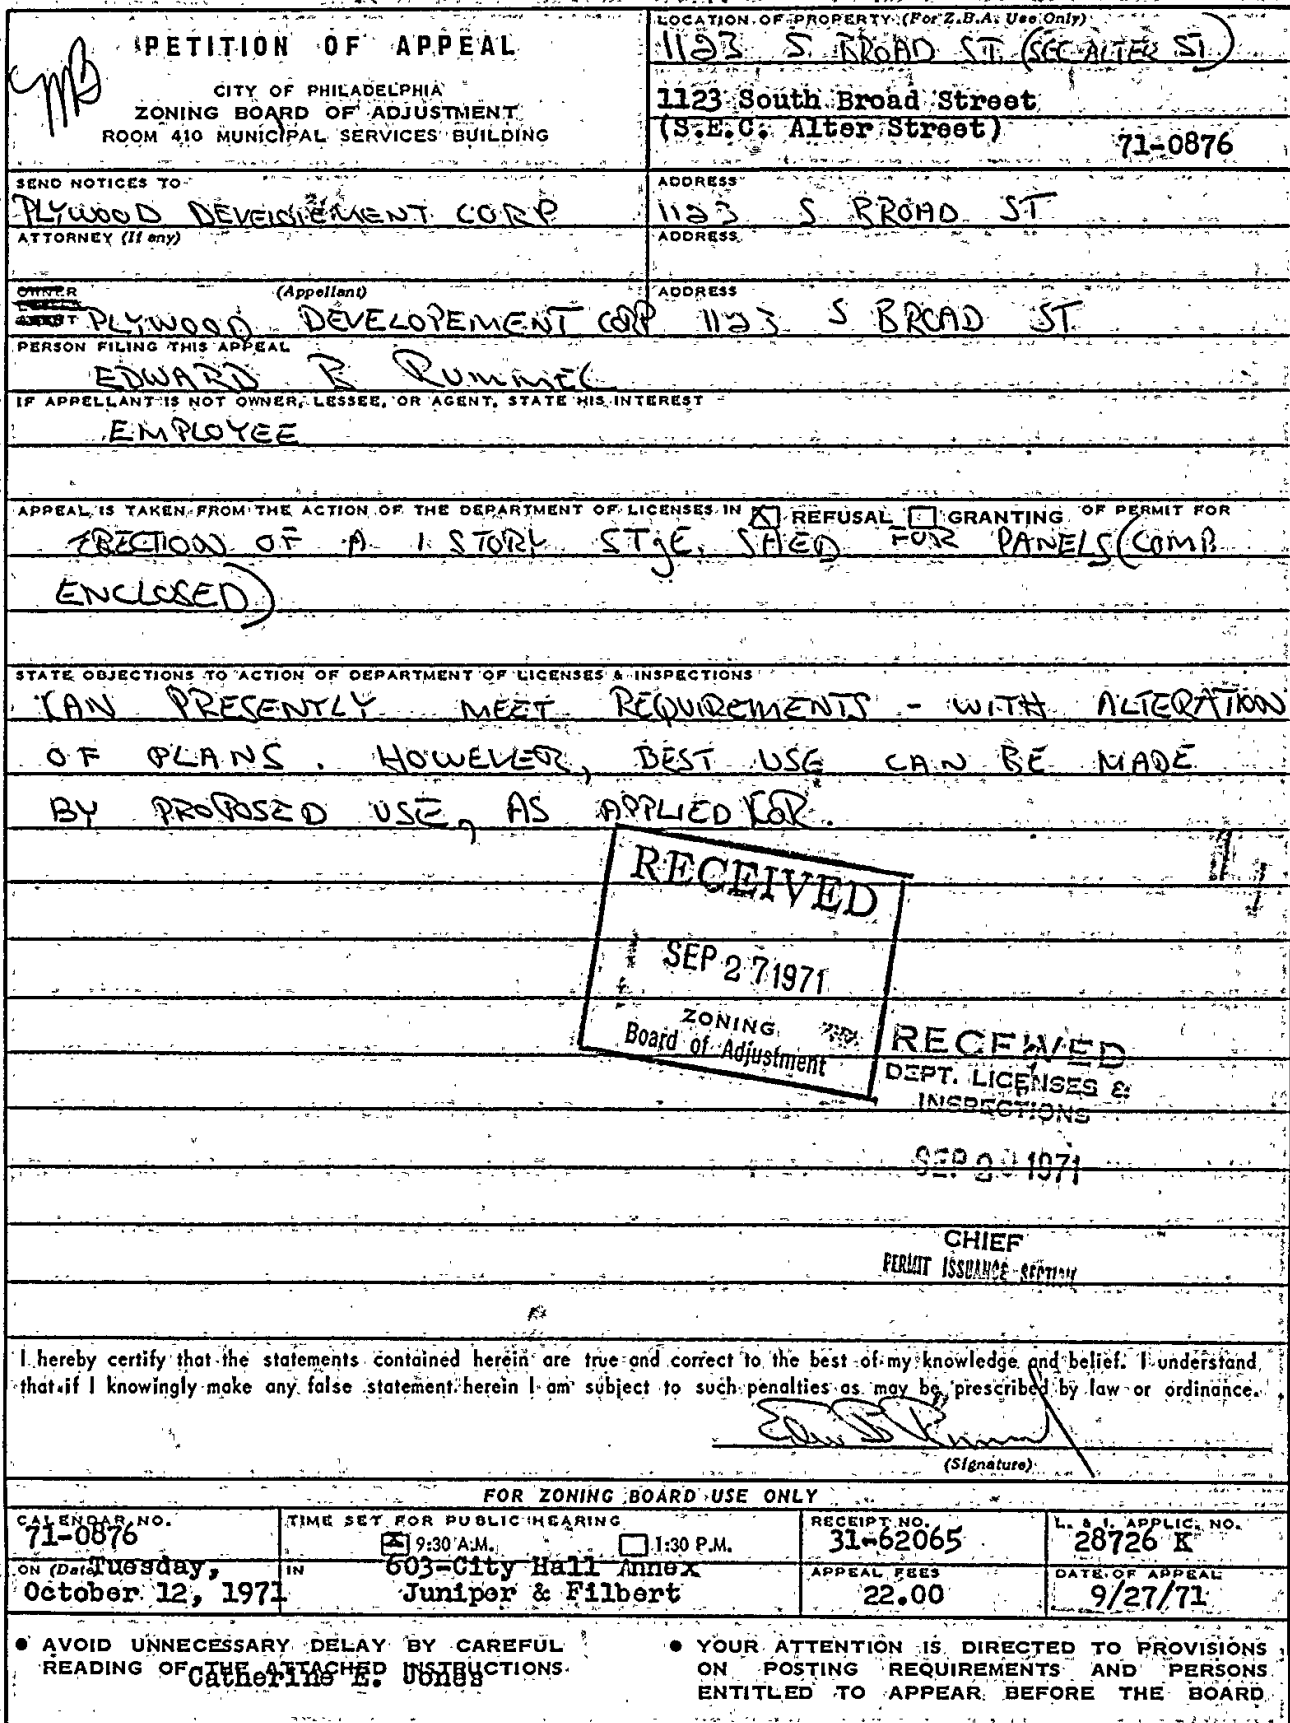 PETITION OF APPEAL
CITY OF PHILADELPHIA
ZONING BOARD OF ADJUSTMENT
ROOM 410 MUNICIPAL SERVICES BUILDING
LOCATION OF PROPERTY (For Z.B.A. Use Only)
1123 S BROAD ST (SEC ALTER ST)
1123 South Broad Street
(S.E.C. Alter Street)
71-0876
SEND NOTICES TO
PLYWOOD DEVELOPEMENT CORP
ADDRESS
1123 S BROAD ST
ATTORNEY (If any)
ADDRESS
OWNER
(Appellant)
PLYWOOD DEVELOPEMENT CORP
ADDRESS
1123 S BROAD ST
PERSON FILING THIS APPEAL
EDWARD B RUMMEL
IF APPELLANT IS NOT OWNER, LESSEE, OR AGENT, STATE HIS INTEREST
EMPLOYEE
APPEAL IS TAKEN FROM THE ACTION OF THE DEPARTMENT OF LICENSES IN [X] REFUSAL [ ] GRANTING OF PERMIT FOR
ERECTION OF A 1 STORY STGE. SHED FOR PANELS (COMP.
ENCLOSED)
STATE OBJECTIONS TO ACTION OF DEPARTMENT OF LICENSES & INSPECTIONS
CAN PRESENTLY MEET REQUIREMENTS - WITH ALTERATION
OF PLANS. HOWEVER, BEST USE CAN BE MADE
BY PROPOSED USE, AS APPLIED FOR.
RECEIVED
SEP 27 1971
ZONING
Board of Adjustment
RECEIVED
DEPT. LICENSES &
INSPECTIONS
SEP 1971
CHIEF
PERMIT ISSUANCE SECTION
I hereby certify that the statements contained herein are true and correct to the best of my knowledge and belief. I understand
that if I knowingly make any false statement herein I am subject to such penalties as may be prescribed by law or ordinance.
(Signature)
FOR ZONING BOARD USE ONLY
CALENDAR NO.
71-0876
TIME SET FOR PUBLIC HEARING
[X] 9:30 A.M. [ ] 1:30 P.M.
RECEIPT NO.
31-62065
L. & I. APPLIC. NO.
28726 K
ON (Date) Tuesday,
October 12, 1971
IN 603-City Hall Annex
Juniper & Filbert
APPEAL FEES
22.00
DATE OF APPEAL
9/27/71
• AVOID UNNECESSARY DELAY BY CAREFUL
READING OF THE ATTACHED INSTRUCTIONS.
Catherine E. Jones
• YOUR ATTENTION IS DIRECTED TO PROVISIONS
ON POSTING REQUIREMENTS AND PERSONS
ENTITLED TO APPEAR BEFORE THE BOARD